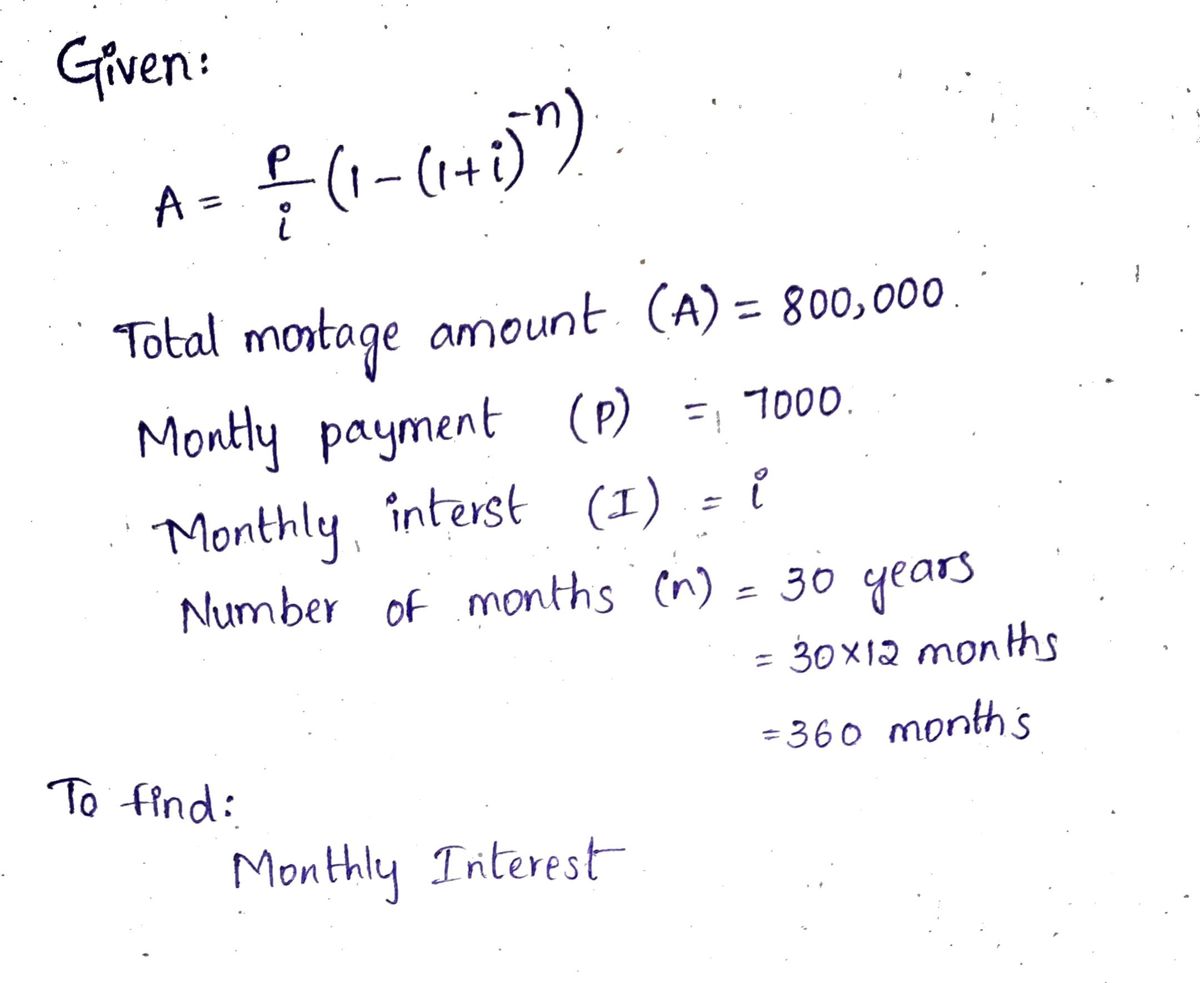 Given:
A = P/i (1 - (1+i)^-n)
Total mortage amount (A) = 800,000.
Montly payment (P) = 7000.
Monthly interst (I) = i
Number of months (n) = 30 years
= 30×12 months
=360 months
To find:
Monthly Interest